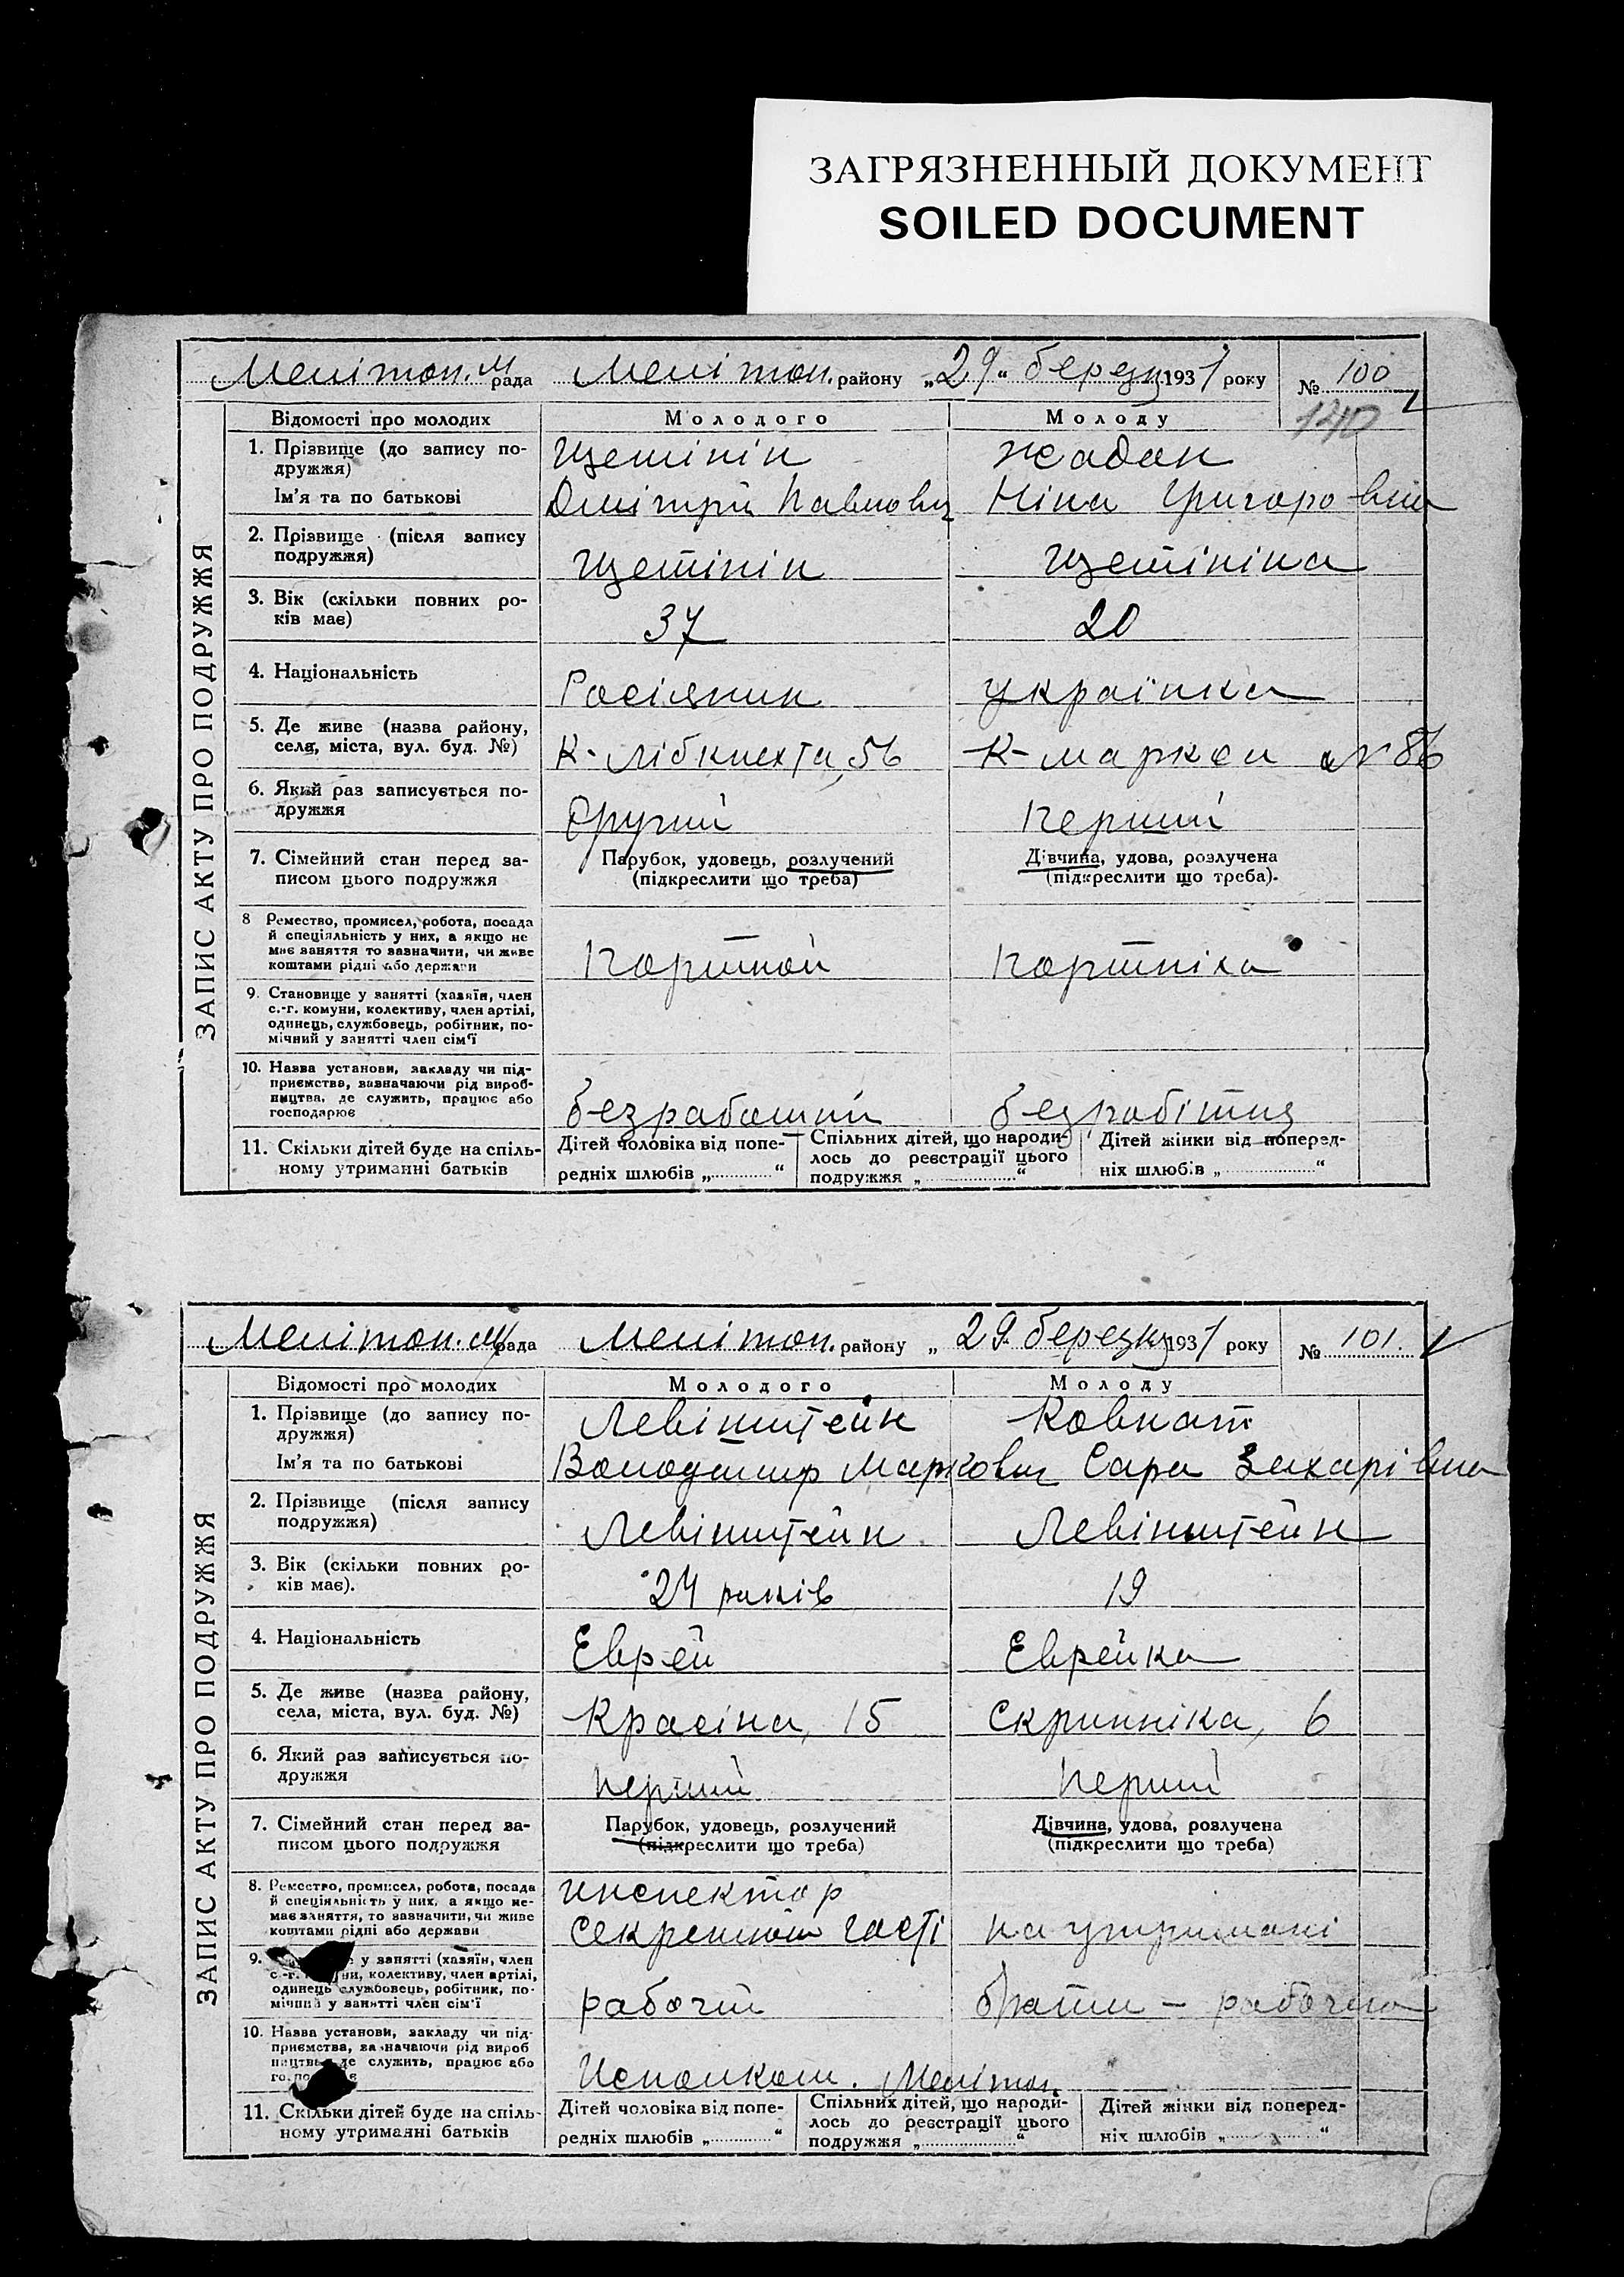 ЗАГРЯЗНЕННЫЙ ДОКУМЕНТ
SOILED DOCUMENT
ЗАПИС АКТУ ПРО ПОДРУЖЖЯ
Мелітоп. м рада Мелітоп. району „29“ березня 1931 року № 100
140
Відомості про молодих Молодого Молоду
1. Прізвище (до запису по- Щетінін Жадан
дружжя)
Ім'я та по батькові Дмітрій Павлович Ніна Григоровна
2. Прізвище (після запису
подружжя) Щетінін Щетініна
3. Вік (скільки повних ро-
ків має) 37 20
4. Національність Росіянин українка
5. Де живе (назва району,
села, міста, вул. буд. №) К. Лібкнехта, 56 К-маркса № 86
6. Який раз записується по-
дружжя Другий Перший
7. Сімейний стан перед за- Парубок, удовець, розлучений Дівчина, удова, розлучена
писом цього подружжя (підкреслити що треба) (підкреслити що треба).
8 Ремество, промисел, робота, посада
й спеціяльність у них, а якщо не
має заняття то зазначити, чи живе
коштами рідні або держави Портной Портніха
9. Становище у занятті (хазяїн, член
с.-г. комуни, колективу, член артілі,
одинець, службовець, робітник, по-
мічний у занятті член сім'ї
10. Назва установи, закладу чи під-
приємства, зазначаючи рід вироб-
ництва, де служить, працює або
господарює безработний безробітня
11. Скільки дітей буде на спіль- Дітей чоловіка від попе- Спільних дітей, що народи- Дітей жінки від поперед-
ному утриманні батьків редніх шлюбів „ “ лось до реєстрації цього ніх шлюбів „ “
подружжя „ “
ЗАПИС АКТУ ПРО ПОДРУЖЖЯ
Мелітоп. м рада Мелітоп. району „29 березня 1931 року № 101.
Відомості про молодих Молодого Молоду
1. Прізвище (до запису по- Левінштейн Ковнат
дружжя)
Ім'я та по батькові Володимир Маркович Сара Захарівна
2. Прізвище (після запису
подружжя) Левінштейн Левінштейн
3. Вік (скільки повних ро-
ків має). 24 років 19
4. Національність Еврей Еврейка
5. Де живе (назва району,
села, міста, вул. буд. №) Красіна, 15 Скрипніка, 6
6. Який раз записується по-
дружжя перший перший
7. Сімейний стан перед за- Парубок, удовець, розлучений Дівчина, удова, розлучена
писом цього подружжя (підкреслити що треба) (підкреслити що треба)
8. Ремество, промисел, робота, посада инспектор
й спеціяльність у них, а якщо не-
має заняття, то зазначити, чи живе
коштами рідні або держави секретной часті на утримані
9. у занятті (хазяїн, член
с.-г. колективу, член артілі,
одинець службовець, робітник, по-
мічний у занятті член сім'ї рабочий брати – рабочие
10. Назва установи, закладу чи під-
приємства, зазначаючи рід вироб
ництва де служить, працює або
Исполком. Мелітоп.
11. Скільки дітей буде на спіль- Дітей чоловіка від попе- Спільних дітей, що народи- Дітей жінки від поперед-
ному утриманні батьків редніх шлюбів „ “ лось до реєстрації цього ніх шлюбів „ “
подружжя „ “